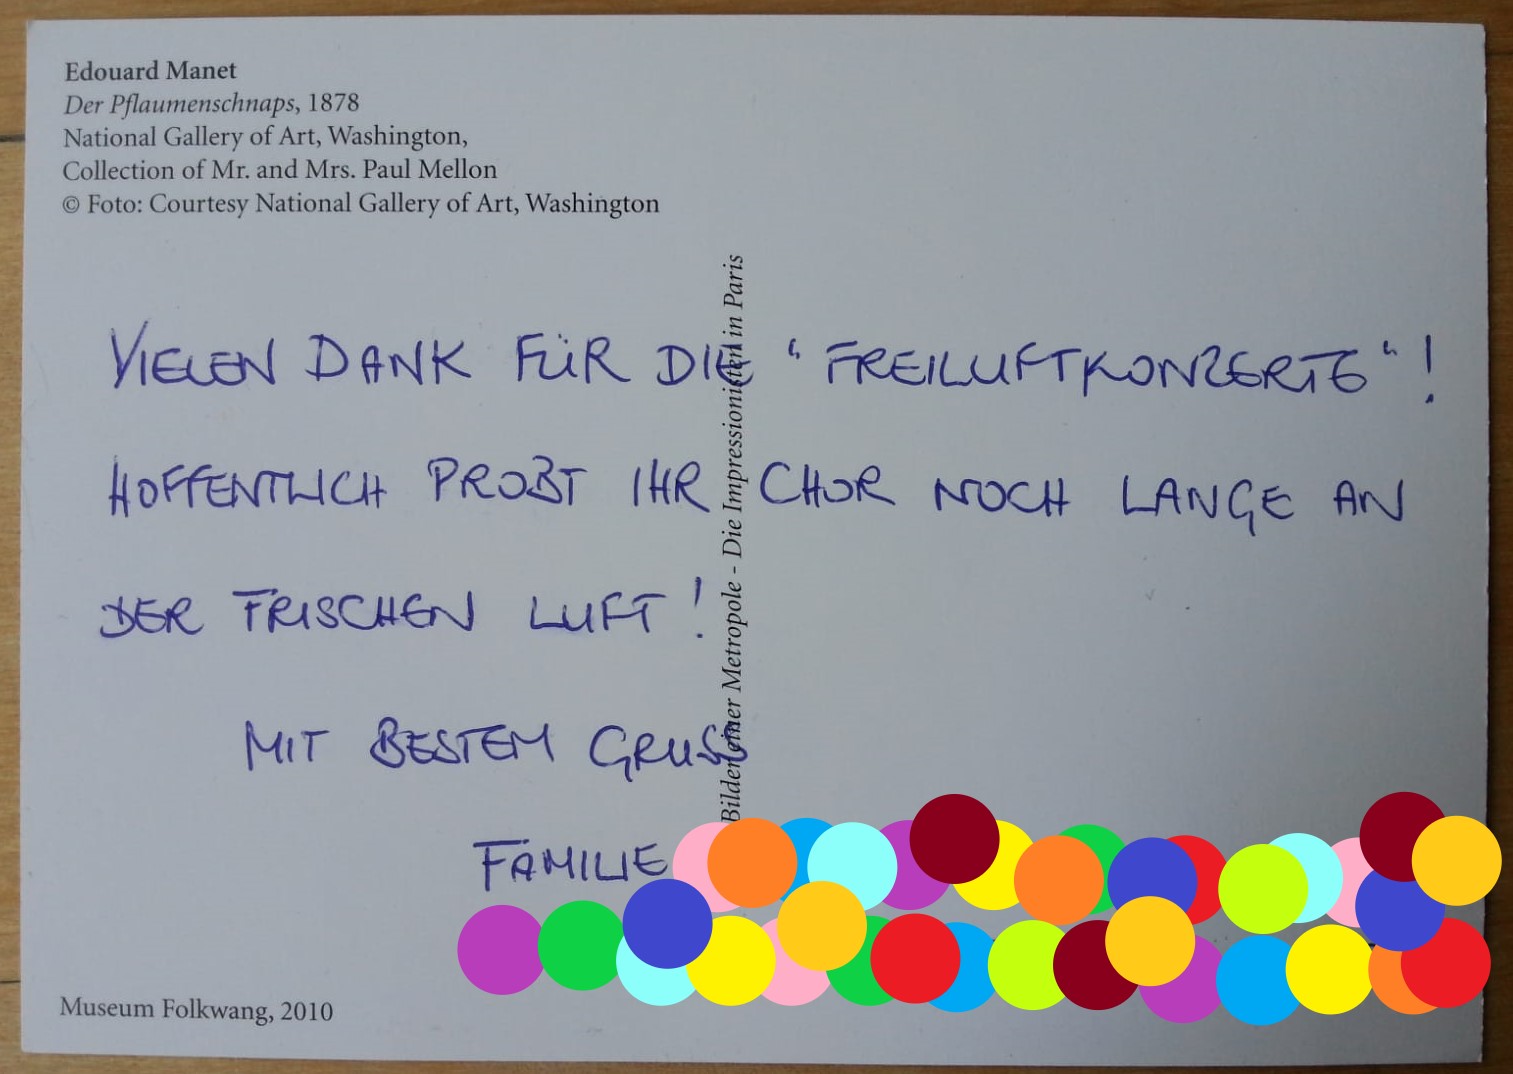 Edouard Manet
Der Pflaumenschnaps, 1878
National Gallery of Art, Washington,
Collection of Mr. and Mrs. Paul Mellon
© Foto: Courtesy National Gallery of Art, Washington
Bilder einer Metropole - Die Impressionisten in Paris
VIELEN DANK FÜR DIE "FREILUFTKONZERTE"!
HOFFENTLICH PROBT IHR CHOR NOCH LANGE AN
DER FRISCHEN LUFT!
MIT BESTEM GRUSS
FAMILIE
Museum Folkwang, 2010